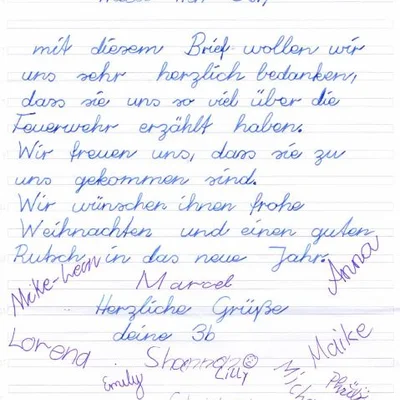 mit diesem Brief wollen wir
uns sehr herzlich bedanken,
dass sie uns so viel über die
Feuerwehr erzählt haben.
Wir freuen uns, dass sie zu
uns gekommen sind.
Wir wünschen ihnen frohe
Weihnachten und einen guten
Rutsch in das neue Jahr.
Anna
Mike-Leon
Marcel
Herzliche Grüße
deine 3b
Lorena
Shannon
Maike
Lilly
Emily